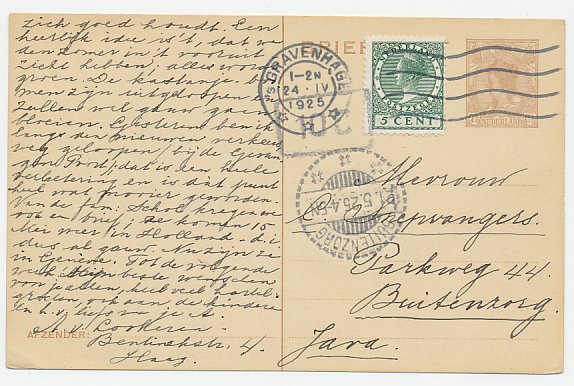 zich goed houdt. Een
heerlijk idee is 't, dat we
den zomer in 't vooruit-
zicht hebben; alles wordt
groen. De kastanje
men zijn uitgeloopen &
zullen wel gauw gaan
bloeien. Gisteren ben ik
langs den nieuwen verkeers
weg geloopen, bij de Gevan
gen Poort; dat is een heele
verbetering en is dat punt
heel wat mooier geworden.
Van de fam. Schol kregen we
ook een brief, ze komen 15
Mei weer in Holland d.i.
dus al gauw. Nu zijn ze
in Genève. Tot de volgende
week beste wenschen
voor je allen, heel veel hartel.
groeten, ook aan de kinderen
en t. v. liefs van je A.
Lookeren
AFZENDER: Bentinckstr. 4
Haag.
BRIEFKAART
's GRAVENHAGE
1-2N
24 · IV
1925
NEDERLAND
5 CENT
NEDERLAND
BUITENZORG
21.5.25.4-5N
Mevrouw
Parkweg 44.
Buitenzorg.
Java.